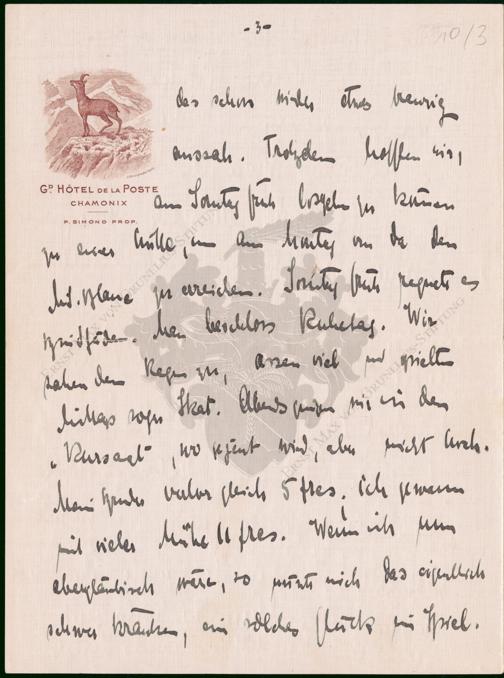 -3-
10/3
das schon wieder etwas brenzlig
aussah. Trotzdem hofften wir,
GD HÔTEL DE LA POSTE
CHAMONIX
P. SIMOND PROP.
am Sonntag früh losgehn zu können
zu einer Hütte, um am Montag von da den
Mt. Blanc zu erreichen. Sonntag früh regnete es
Bindfäden. Man beschloss Ruhetag. Wir
sahen dem Regen zu, assen viel und spielten
Mittags sogar Skat. Abends gingen wir in den
"Kursaal", wo gejeut wird, aber nicht hoch.
Mein Bruder verlor gleich 5 frcs, ich gewann
mit vieler Mühe 11 frcs. Wenn ich nun
abergläubisch wäre, so müsste mich das eigentlich
schwer kränken, ein solches Glück im Spiel.
ERNST MAX VON GRUNELIUS-STIFTUNG
ERNST MAX VON GRUNELIUS-STIFTUNG